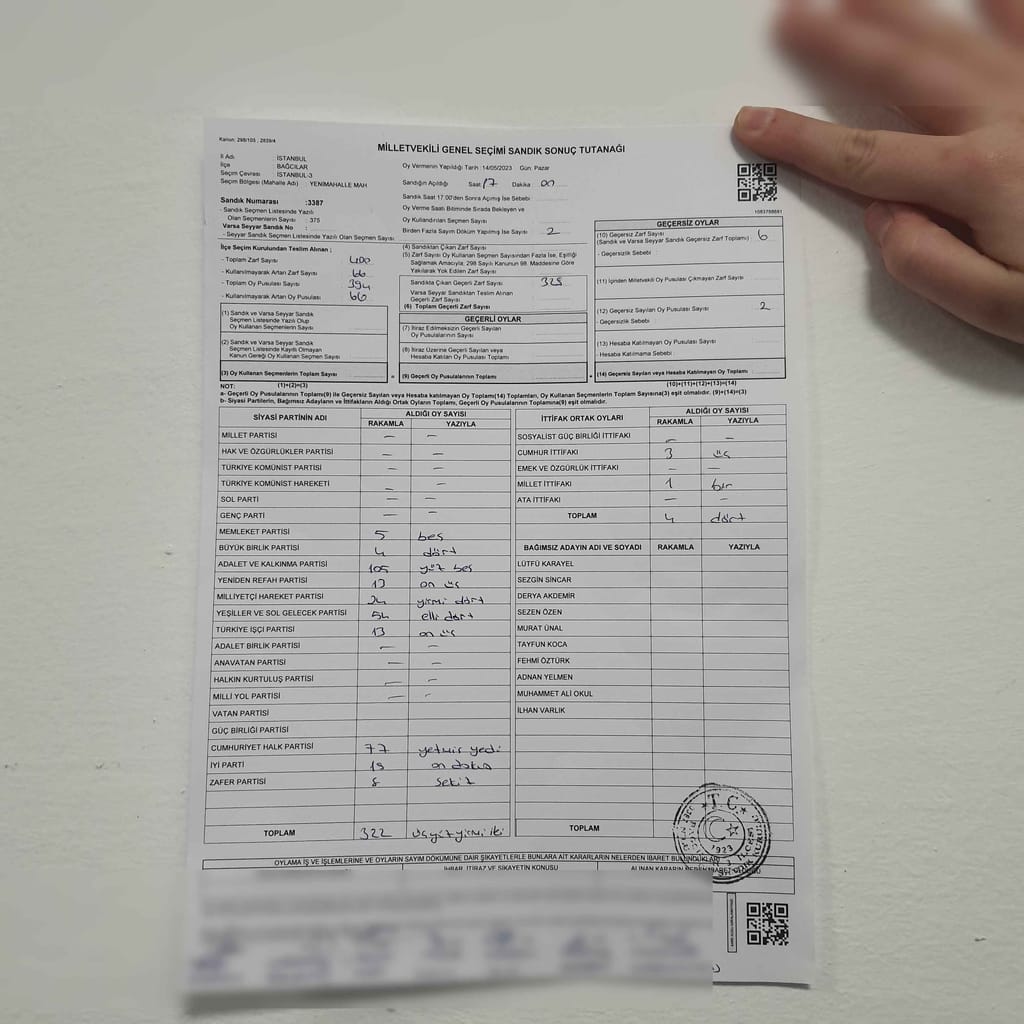 Kanun: 298/105 ; 2839/4
MİLLETVEKİLİ GENEL SEÇİMİ SANDIK SONUÇ TUTANAĞI
İl Adı : İSTANBUL
İlçe : BAĞCILAR
Seçim Çevresi : İSTANBUL-3
Seçim Bölgesi (Mahalle Adı) YENİMAHALLE MAH
Sandık Numarası :3387
- Sandık Seçmen Listesinde Yazılı
Olan Seçmenlerin Sayısı : 375
Varsa Seyyar Sandık No :
- Seyyar Sandık Seçmen Listesinde Yazılı Olan Seçmen Sayısı
İlçe Seçim Kurulundan Teslim Alınan ;
- Toplam Zarf Sayısı 400
- Kullanılmayarak Artan Zarf Sayısı 66
- Toplam Oy Pusulası Sayısı 394
- Kullanılmayarak Artan Oy Pusulası 66
(1) Sandık ve Varsa Seyyar Sandık
Seçmen Listesinde Yazılı Olup
Oy Kullanan Seçmenlerin Sayısı
(2) Sandık ve Varsa Seyyar Sandık
Seçmen Listesinde Kayıtlı Olmayan
Kanun Gereği Oy Kullanan Seçmen Sayısı
(3) Oy Kullanan Seçmenlerin Toplam Sayısı
Oy Vermenin Yapıldığı Tarih :14/05/2023 Gün: Pazar
Sandığın Açıldığı Saat 17 Dakika 00
Sandık Saat 17:00'den Sonra Açılmış İse Sebebi
Oy Verme Saati Bitiminde Sırada Bekleyen ve
Oy Kullandırılan Seçmen Sayısı
Birden Fazla Sayım Döküm Yapılmış İse Sayısı 2
(4) Sandıktan Çıkan Zarf Sayısı
(5) Zarf Sayısı Oy Kullanan Seçmen Sayısından Fazla İse, Eşitliği
Sağlamak Amacıyla; 298 Sayılı Kanunun 98. Maddesine Göre
Yakılarak Yok Edilen Zarf Sayısı
Sandıkta Çıkan Geçerli Zarf Sayısı 328
Varsa Seyyar Sandıktan Teslim Alınan
Geçerli Zarf Sayısı
(6) Toplam Geçerli Zarf Sayısı
GEÇERLİ OYLAR
(7) İtiraz Edilmeksizin Geçerli Sayılan
Oy Pusulalarının Sayısı
(8) İtiraz Üzerine Geçerli Sayılan veya
Hesaba Katılan Oy Pusulası Toplamı
= (9) Geçerli Oy Pusulalarının Toplamı
1083788681
GEÇERSİZ OYLAR
(10) Geçersiz Zarf Sayısı 6
(Sandık ve Varsa Seyyar Sandık Geçersiz Zarf Toplamı)
- Geçersizlik Sebebi
(11) İçinden Milletvekili Oy Pusulası Çıkmayan Zarf Sayısı
(12) Geçersiz Sayılan Oy Pusulası Sayısı 2
- Geçersizlik Sebebi
(13) Hesaba Katılmayan Oy Pusulası Sayısı
- Hesaba Katılmama Sebebi
+ (14) Geçersiz Sayılan veya Hesaba Katılmayan Oy Toplamı
NOT: (1)+(2)=(3) (10)+(11)+(12)+(13)=(14)
a- Geçerli Oy Pusulalarının Toplamı(9) ile Geçersiz Sayılan veya Hesaba katılmayan Oy Toplamı(14) Toplamları, Oy Kullanan Seçmenlerin Toplam Sayısına(3) eşit olmalıdır. (9)+(14)=(3)
b- Siyasi Partilerin, Bağımsız Adayların ve İttifakların Aldığı Ortak Oyların Toplamı, Geçerli Oy Pusulalarının Toplamına(9) eşit olmalıdır.
SİYASİ PARTİNİN ADI ALDIĞI OY SAYISI
RAKAMLA YAZIYLA
MİLLET PARTİSİ — —
HAK VE ÖZGÜRLÜKLER PARTİSİ — —
TÜRKİYE KOMÜNİST PARTİSİ — —
TÜRKİYE KOMÜNİST HAREKETİ — —
SOL PARTİ — —
GENÇ PARTİ — —
MEMLEKET PARTİSİ 5 beş
BÜYÜK BİRLİK PARTİSİ 4 dört
ADALET VE KALKINMA PARTİSİ 105 yüz beş
YENİDEN REFAH PARTİSİ 13 on üç
MİLLİYETÇİ HAREKET PARTİSİ 24 yirmi dört
YEŞİLLER VE SOL GELECEK PARTİSİ 54 elli dört
TÜRKİYE İŞÇİ PARTİSİ 13 on üç
ADALET BİRLİK PARTİSİ — —
ANAVATAN PARTİSİ — —
HALKIN KURTULUŞ PARTİSİ — —
MİLLİ YOL PARTİSİ — —
VATAN PARTİSİ
GÜÇ BİRLİĞİ PARTİSİ
CUMHURİYET HALK PARTİSİ 77 yetmiş yedi
İYİ PARTİ 19 on dokuz
ZAFER PARTİSİ 8 sekiz
TOPLAM 322 üçyüzyirmi iki
İTTİFAK ORTAK OYLARI ALDIĞI OY SAYISI
RAKAMLA YAZIYLA
SOSYALİST GÜÇ BİRLİĞİ İTTİFAKI — —
CUMHUR İTTİFAKI 3 üç
EMEK VE ÖZGÜRLÜK İTTİFAKI — —
MİLLET İTTİFAKI 1 bir
ATA İTTİFAKI — —
TOPLAM 4 dört
BAĞIMSIZ ADAYIN ADI VE SOYADI RAKAMLA YAZIYLA
LÜTFÜ KARAYEL
SEZGİN SİNCAR
DERYA AKDEMİR
SEZEN ÖZEN
MURAT ÜNAL
TAYFUN KOCA
FEHMİ ÖZTÜRK
ADNAN YELMEN
MUHAMMET ALİ OKUL
İLHAN VARLIK
TOPLAM
T.C.
1923
OYLAMA İŞ VE İŞLEMLERİNE VE OYLARIN SAYIM DÖKÜMÜNE DAİR ŞİKAYETLERLE BUNLARA AİT KARARLARIN NELERDEN İBARET BULUNDUKLARI
İHBAR, İTİRAZ VE ŞİKAYETİN KONUSU